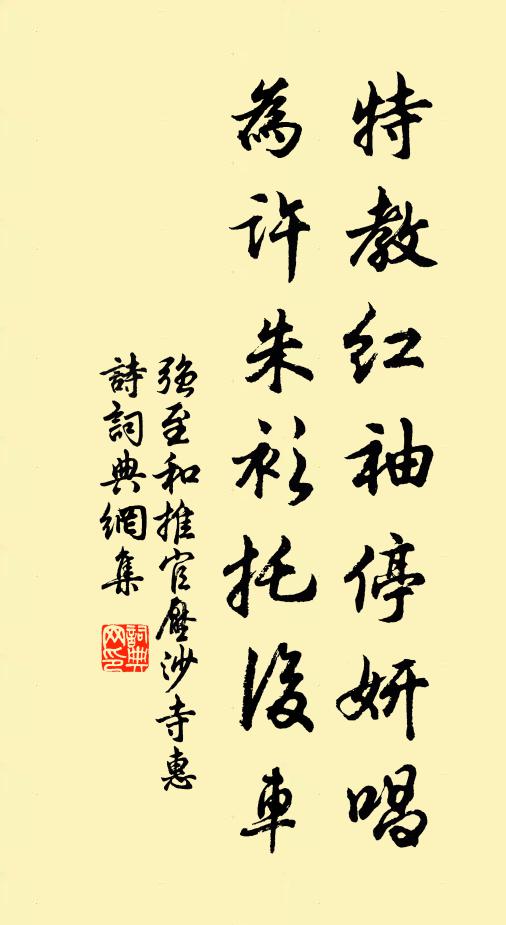 特教红袖停妍唱
為許朱衫托後車
强至和推官壓沙寺惠
詩詞典網集
詞典
网印